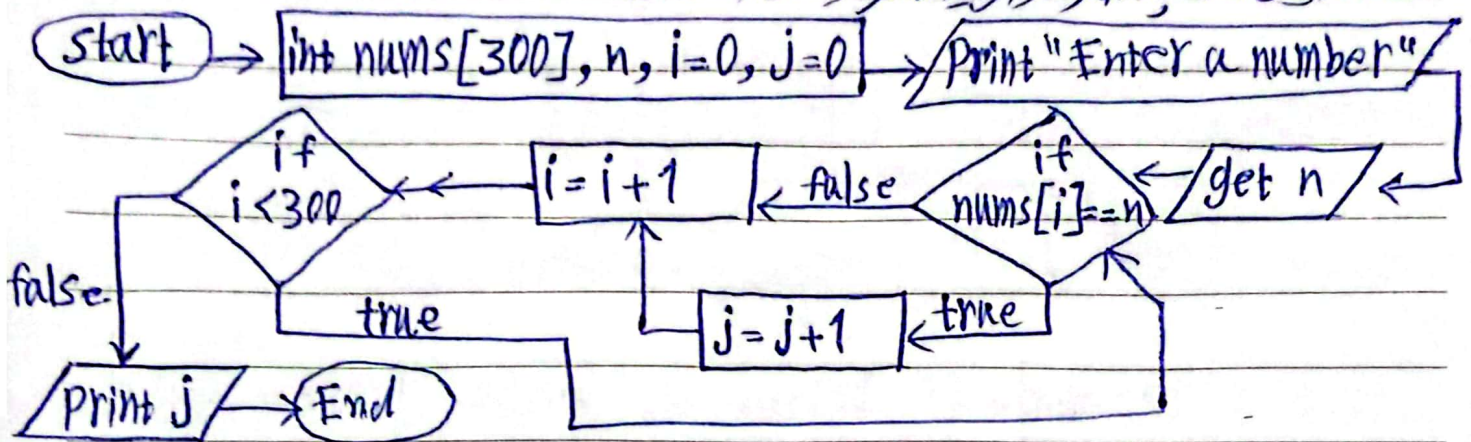 start
int nums[300], n, i=0, j=0
Print "Enter a number"
get n
if
nums[i]==n
false
true
j=j+1
i=i+1
if
i<300
true
false
print j
End